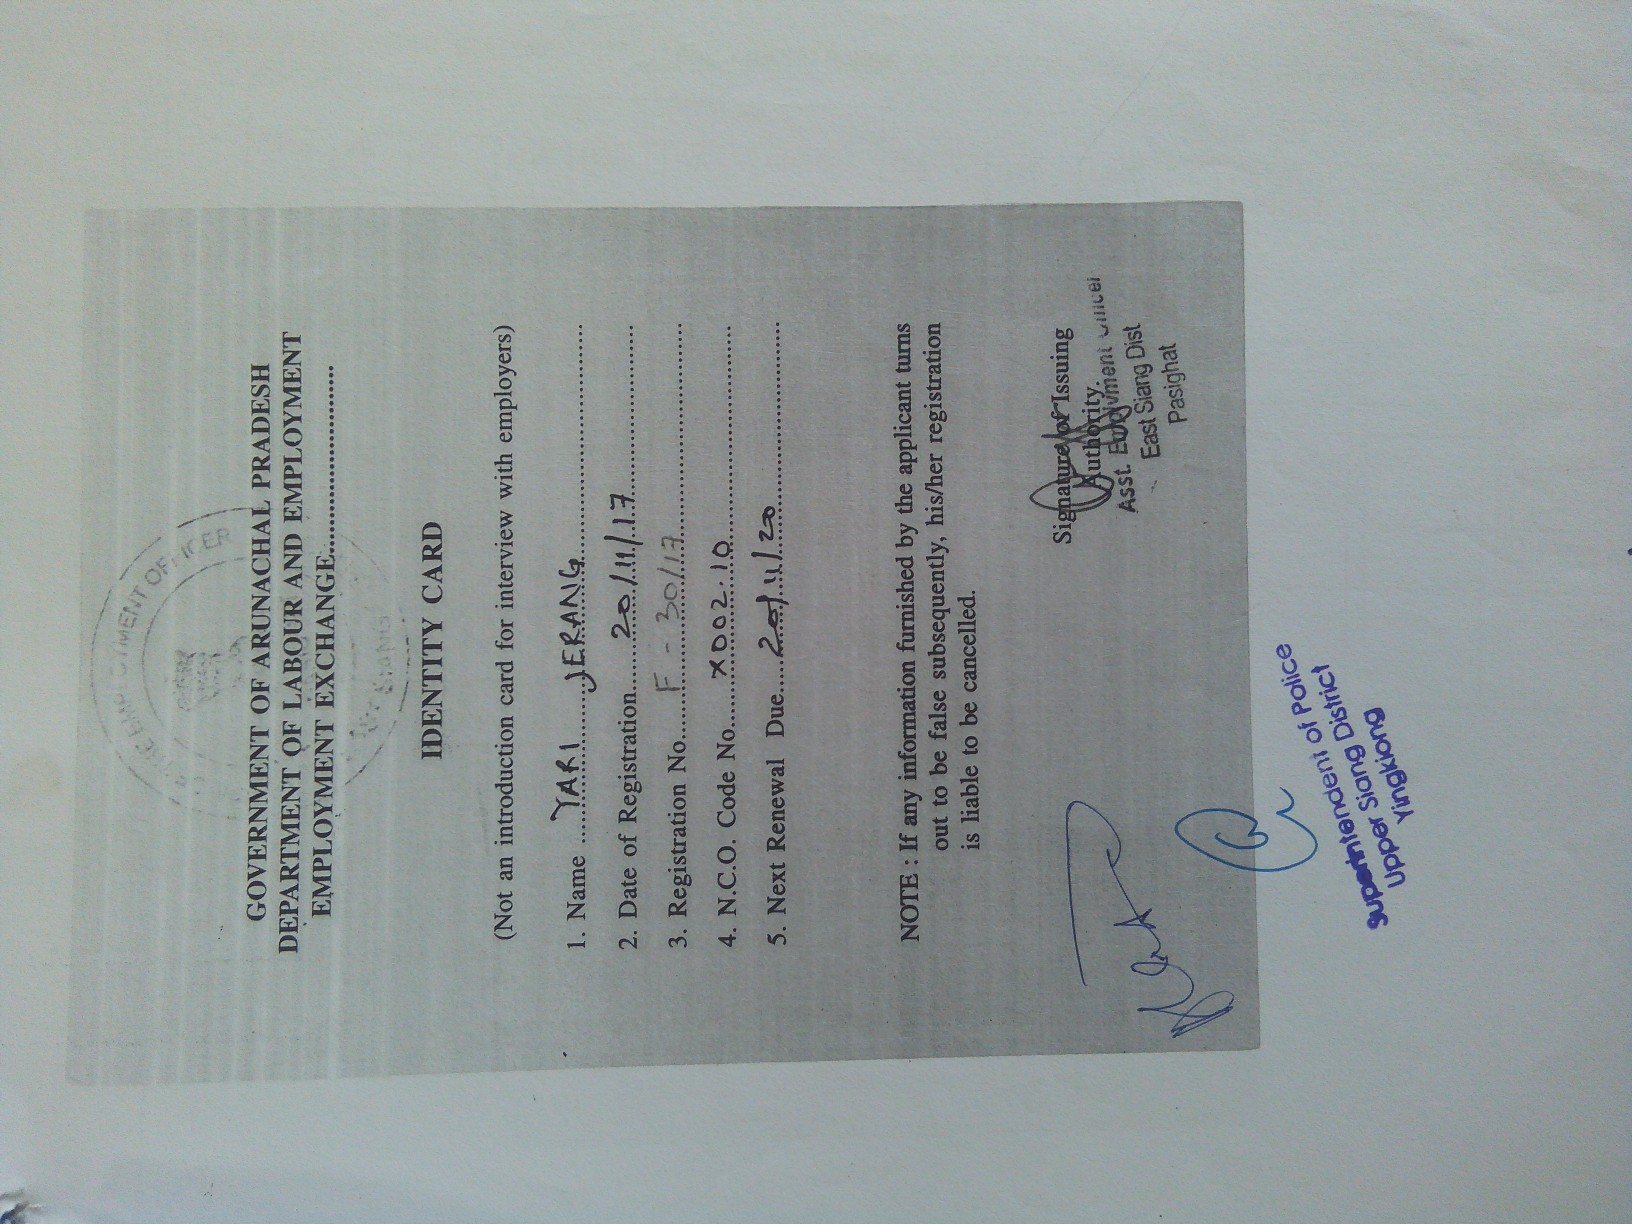 EMPLOYMENT OFFICER
GOVERNMENT OF ARUNACHAL PRADESH
DEPARTMENT OF LABOUR AND EMPLOYMENT
EMPLOYMENT EXCHANGE..............................
IDENTITY CARD
(Not an introduction card for interview with employers)
1. Name ....YARI......JERANG..............................
2. Date of Registration......20/11/17....................
3. Registration No......F-30/17..............................
4. N.C.O. Code No......X002.10..............................
5. Next Renewal Due....20/11/20..............................
NOTE : If any information furnished by the applicant turns
out to be false subsequently, his/her registration
is liable to be cancelled.
Signature of Issuing
Authority.
Asst. Employment Officer
East Siang Dist
Pasighat
Superintendent of Police
Upper Siang District
Yingkiong